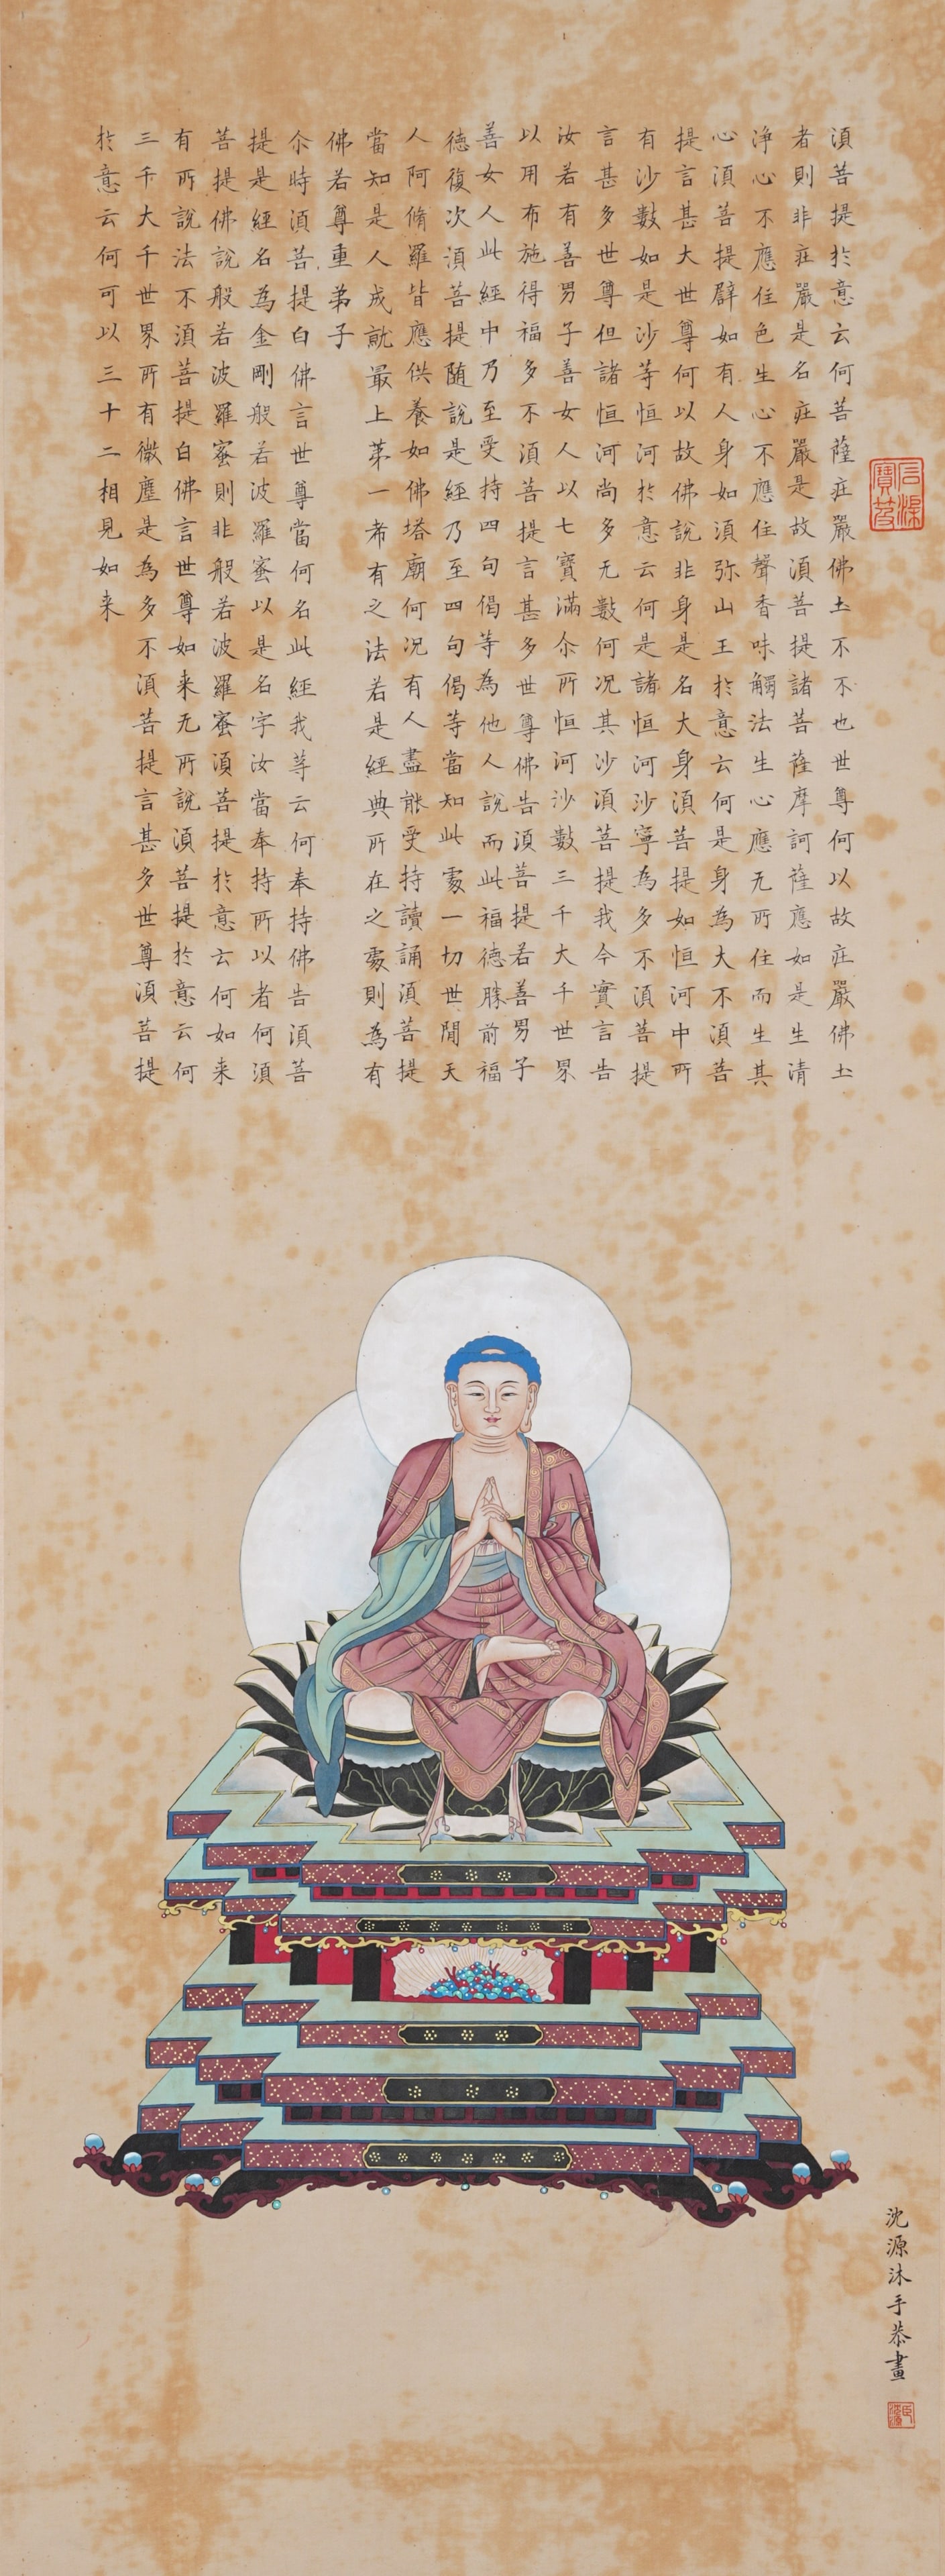 湏菩提扵意云何菩薩疘嚴佛土不不也世尊何以故疘嚴佛土
者則非疘嚴是名疘嚴是故湏菩提諸菩薩摩訶薩應如是生清
淨心不應住色生心不應住聲香味觸法生心應无所住而生其
心湏菩提辟如有人身如湏弥山王扵意云何是身為大不湏菩
提言甚大世尊何以故佛說非身是名大身湏菩提如恒河中所
有沙數如是沙等恒河扵意云何是諸恒河沙寧為多不湏菩提
言甚多世尊但諸恒河尚多无數何况其沙湏菩提我今實言告
汝若有善男子善女人以七寶滿尒所恒河沙數三千大千世界
以用布施得福多不湏菩提言甚多世尊佛告湏菩提若善男子
善女人此經中乃至受持四句偈等為他人說而此福德勝前福
德復次湏菩提随說是經乃至四句偈等當知此䖏一切世閒天
人阿脩羅皆應供養如佛塔廟何况有人盡能受持讀誦湏菩提
當知是人成就最上苐一希有之法若是經典所在之䖏則為有
佛若尊重弟子
尒時湏菩提白佛言世尊當何名此經我等云何奉持佛告湏菩
提是經名為金剛般若波羅蜜以是名字汝當奉持所以者何湏
菩提佛說般若波羅蜜則非般若波羅蜜湏菩提扵意云何如来
有所說法不湏菩提白佛言世尊如来无所說湏菩提扵意云何
三千大千世界所有微塵是為多不湏菩提言甚多世尊湏菩提
扵意云何可以三十二相見如来
沈源沐手恭畫